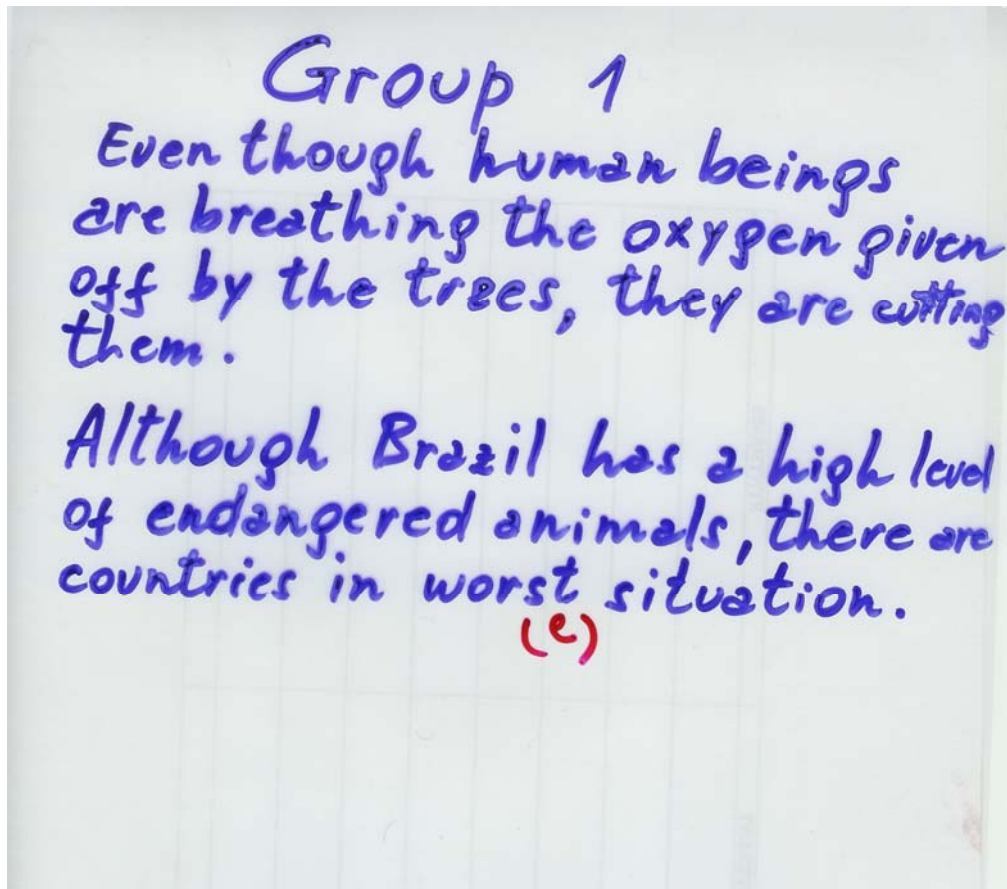 Group 1
Even though human beings
are breathing the oxygen given
off by the trees, they are cutting
them.
Although Brazil has a high level
of endangered animals, there are
countries in worst situation.
(e)